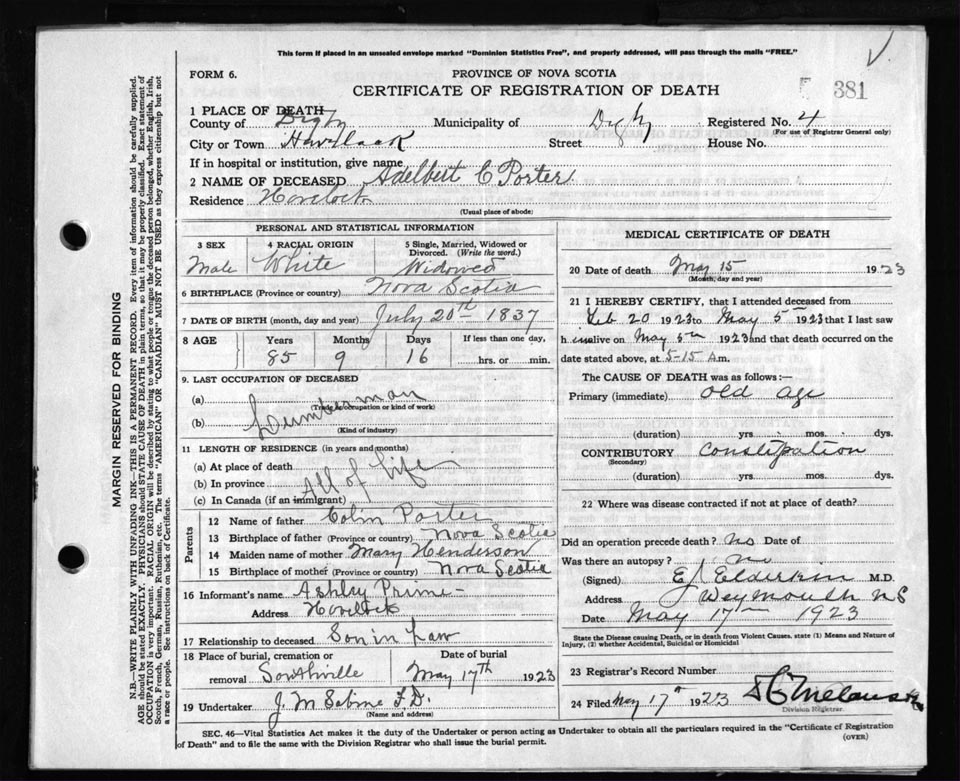 This form if placed in an unsealed envelope marked "Dominion Statistics Free", and properly addressed, will pass through the mails "FREE."
FORM 6.
PROVINCE OF NOVA SCOTIA
CERTIFICATE OF REGISTRATION OF DEATH
381
1 PLACE OF DEATH
County of Digby Municipality of Digby Registered No. 4
(For use of Registrar General only)
City or Town Havelock Street House No.
If in hospital or institution, give name
2 NAME OF DECEASED Adelbert C Porter
Residence Havelock
(Usual place of abode)
PERSONAL AND STATISTICAL INFORMATION
3 SEX 4 RACIAL ORIGIN 5 Single, Married, Widowed or Divorced. (Write the word.)
Male White Widowed
6 BIRTHPLACE (Province or country) Nova Scotia
7 DATE OF BIRTH (month, day and year) July 20th 1837
8 AGE Years Months Days If less than one day,
85 9 16 hrs. or min.
9. LAST OCCUPATION OF DECEASED
(a) Lumberman
(Trade, occupation or kind of work)
(b)
(Kind of industry)
11 LENGTH OF RESIDENCE (in years and months)
(a) At place of death
(b) In province All of Life
(c) In Canada (if an immigrant)
Parents
12 Name of father Colin Porter
13 Birthplace of father (Province or country) Nova Scotia
14 Maiden name of mother Mary Henderson
15 Birthplace of mother (Province or country) Nova Scotia
16 Informant's name Ashley Prime
Address Havelock
17 Relationship to deceased Son in Law
18 Place of burial, cremation or removal Southville
Date of burial
May 17th 1923
19 Undertaker J. M Sabine F.D.
(Name and address)
MEDICAL CERTIFICATE OF DEATH
20 Date of death May 15 1923
(Month, day and year)
21 I HEREBY CERTIFY, that I attended deceased from
Feb 20 1923 to May 5th 1923 that I last saw
h im alive on May 5th 1923 and that death occurred on the
date stated above, at 5-15 A m.
The CAUSE OF DEATH was as follows:—
Primary (immediate) old age
(duration) yrs. mos. dys.
CONTRIBUTORY Constipation
(Secondary)
(duration) yrs. mos. dys.
22 Where was disease contracted if not at place of death?
Did an operation precede death? no Date of
Was there an autopsy? no
(Signed) E J Elderkin M.D.
Address Weymouth N S
Date May 17th 1923
State the Disease causing Death, or in death from Violent Causes, state (1) Means and Nature of
Injury, (2) whether Accidental, Suicidal or Homicidal
23 Registrar's Record Number
24 Filed May 17th 1923
Division Registrar.
SEC. 46—Vital Statistics Act makes it the duty of the Undertaker or person acting as Undertaker to obtain all the particulars required in the "Certificate of Registration
of Death" and to file the same with the Division Registrar who shall issue the burial permit.
(OVER)
MARGIN RESERVED FOR BINDING
N.B.—WRITE PLAINLY WITH UNFADING INK—THIS IS A PERMANENT RECORD. Every item of information should be carefully supplied.
AGE should be stated EXACTLY. PHYSICIANS should STATE CAUSE OF DEATH in plain terms, so that it may be properly classified. Exact statement of
OCCUPATION is very important. RACIAL ORIGIN will be described by stating to what people or tongue the deceased person belonged, whether English, Irish,
Scotch, French, German, Russian, Ruthenian, etc. The terms "AMERICAN" OR "CANADIAN" MUST NOT BE USED as they express citizenship but not
a race or people. See instructions on back of Certificate.